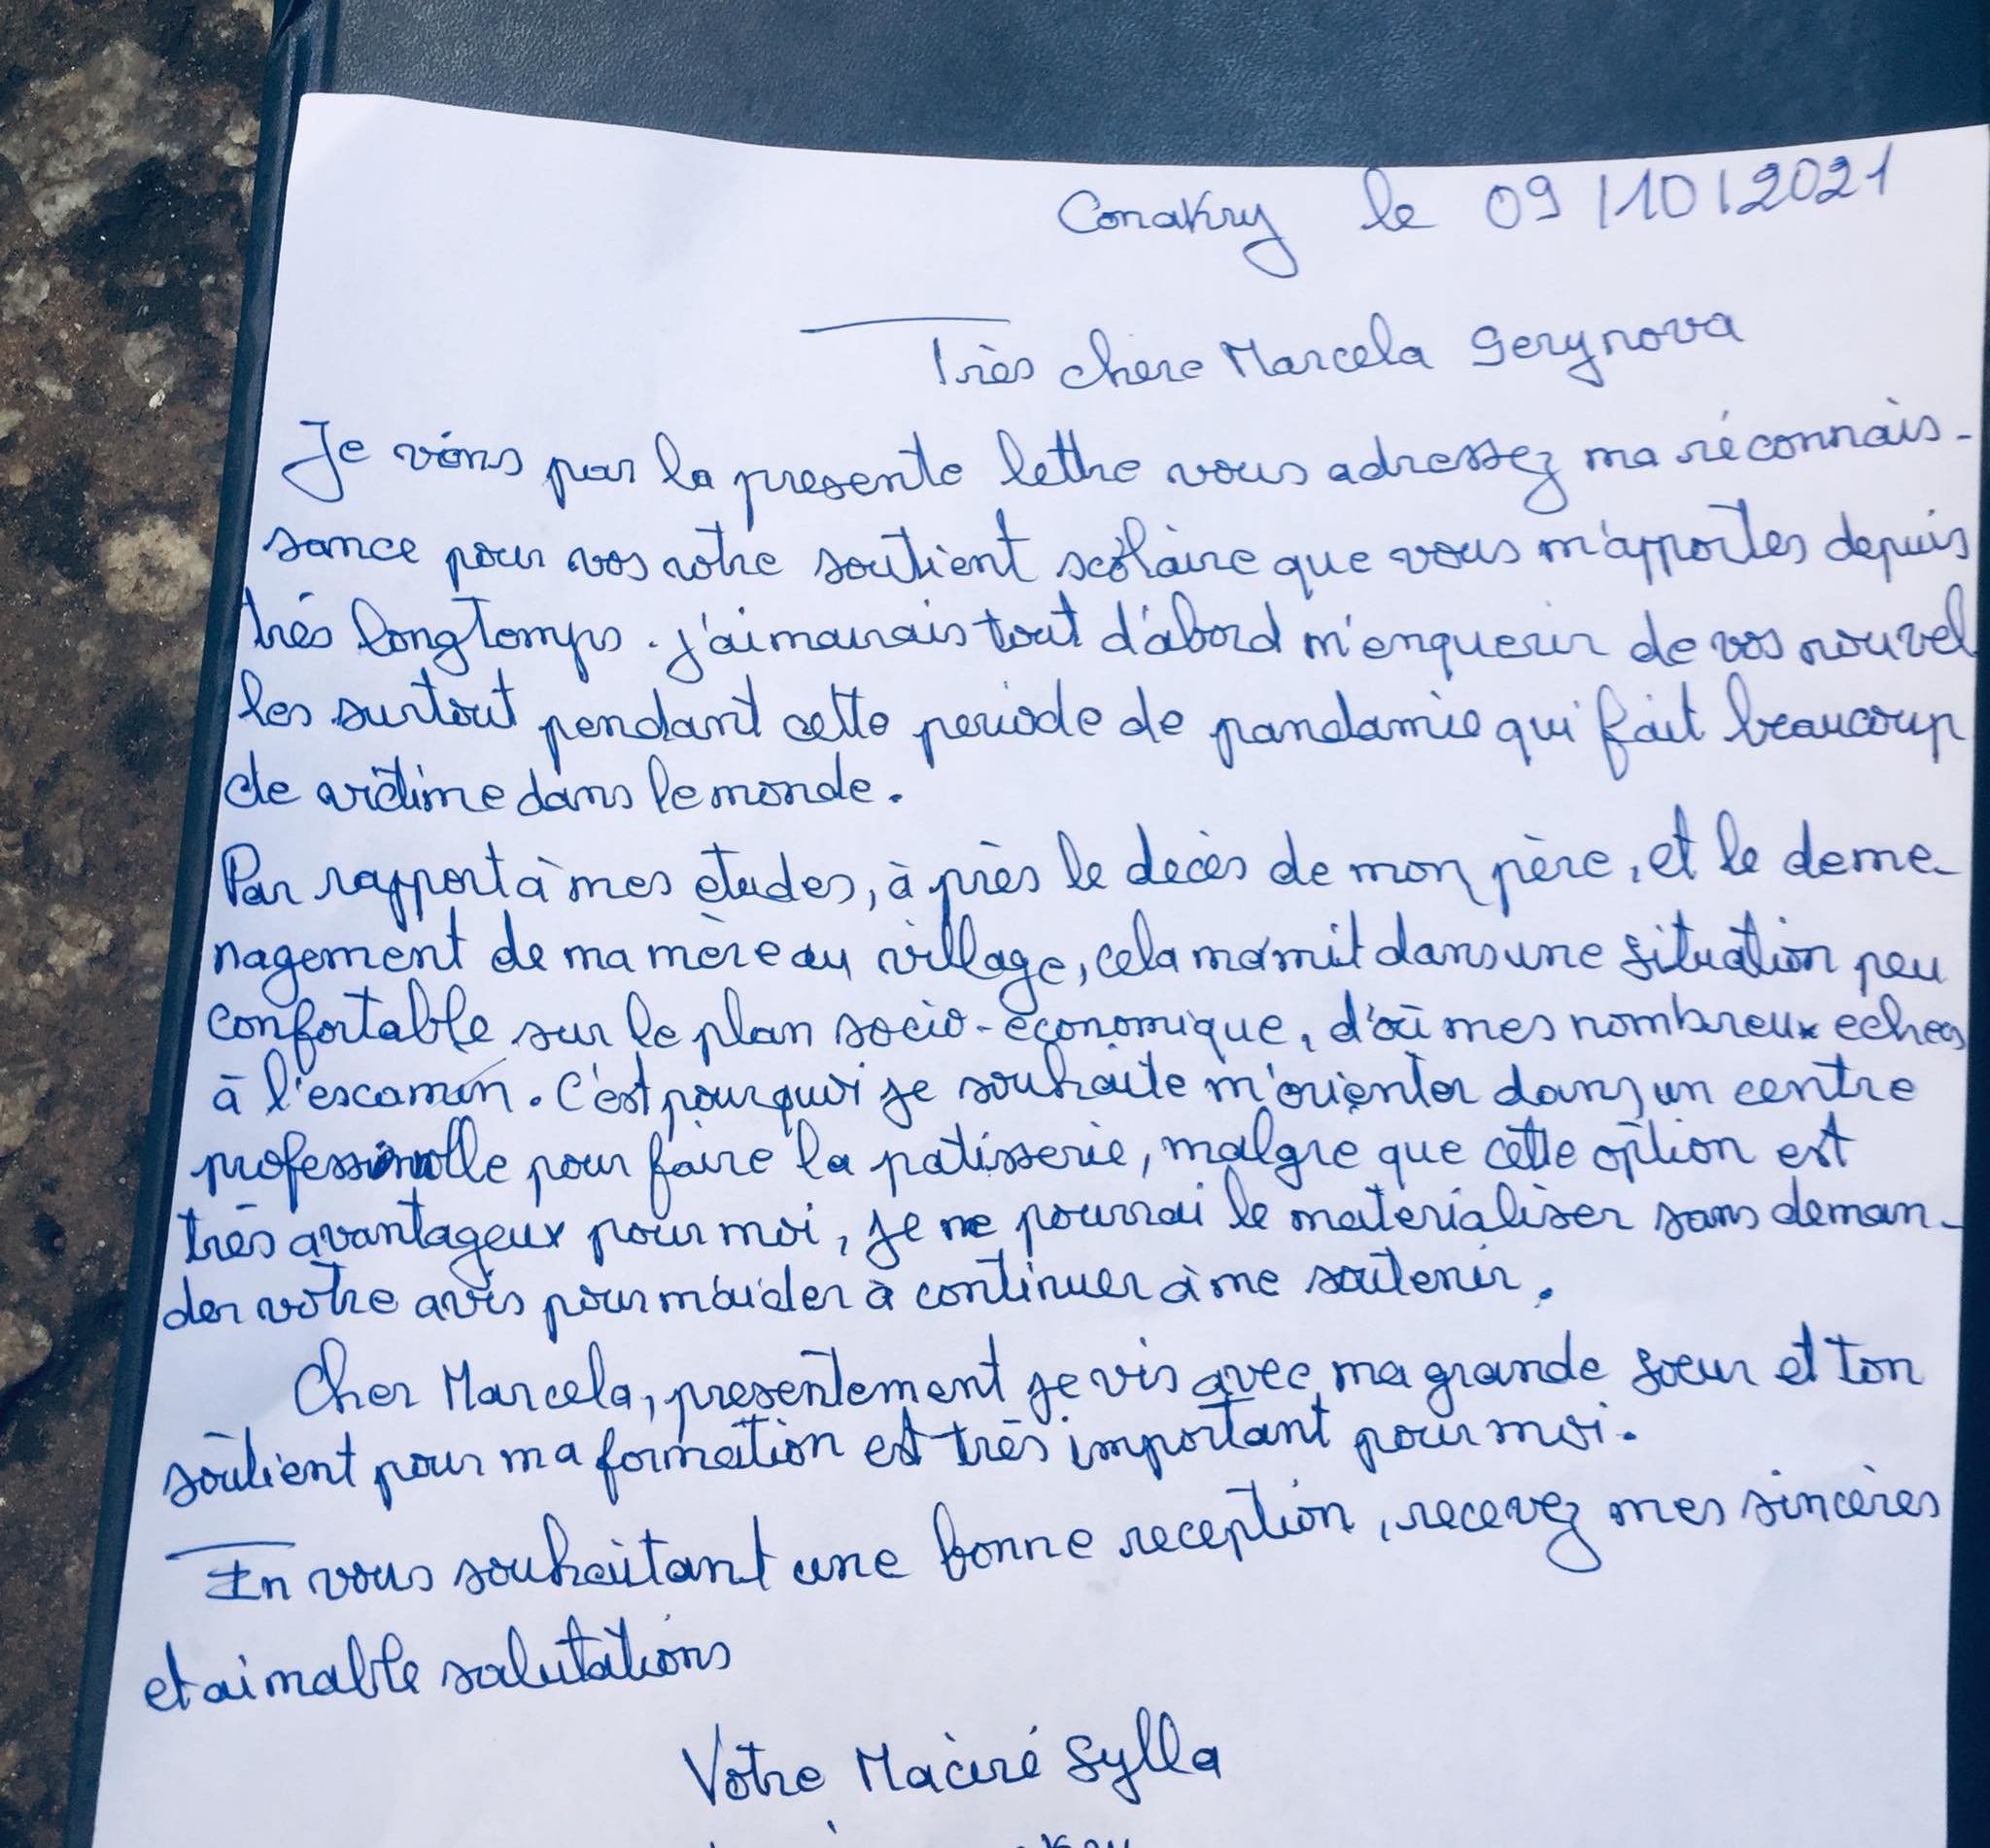 Conakry le 09/10/2021
Très chere Marcela Gerynova
Je viens par la presente lettre vous adressez ma réconnais-
sance pour vos votre soutient scolaire que vous m'apportes depuis
très longtemps. j'aimerais tout d'abord m'enquerir de vos nouvel
les surtout pendant cette periode de pandamie qui fait beaucoup
de victime dans le monde.
Par rapport à mes etudes, à près le decès de mon père, et le deme-
nagement de ma mère au village, cela m'a mit dans une situation peu
confortable sur le plan socio-economique, d'où mes nombreux echecs
à l'escamen. C'est pourquoi je souhaite m'orienter dans un centre
professionnelle pour faire la patisserie, malgre que cette option est
très avantageux pour moi, je ne pourrai le materialiser sans deman-
der votre avis pour m'aider à continuer à me soutenir.
Cher Marcela, presentement je vis avec ma grande soeur et ton
soutient pour ma formation est très important pour moi.
En vous souhaitant une bonne reception, recevez mes sincères
et aimable salutations
Votre Maciré Sylla